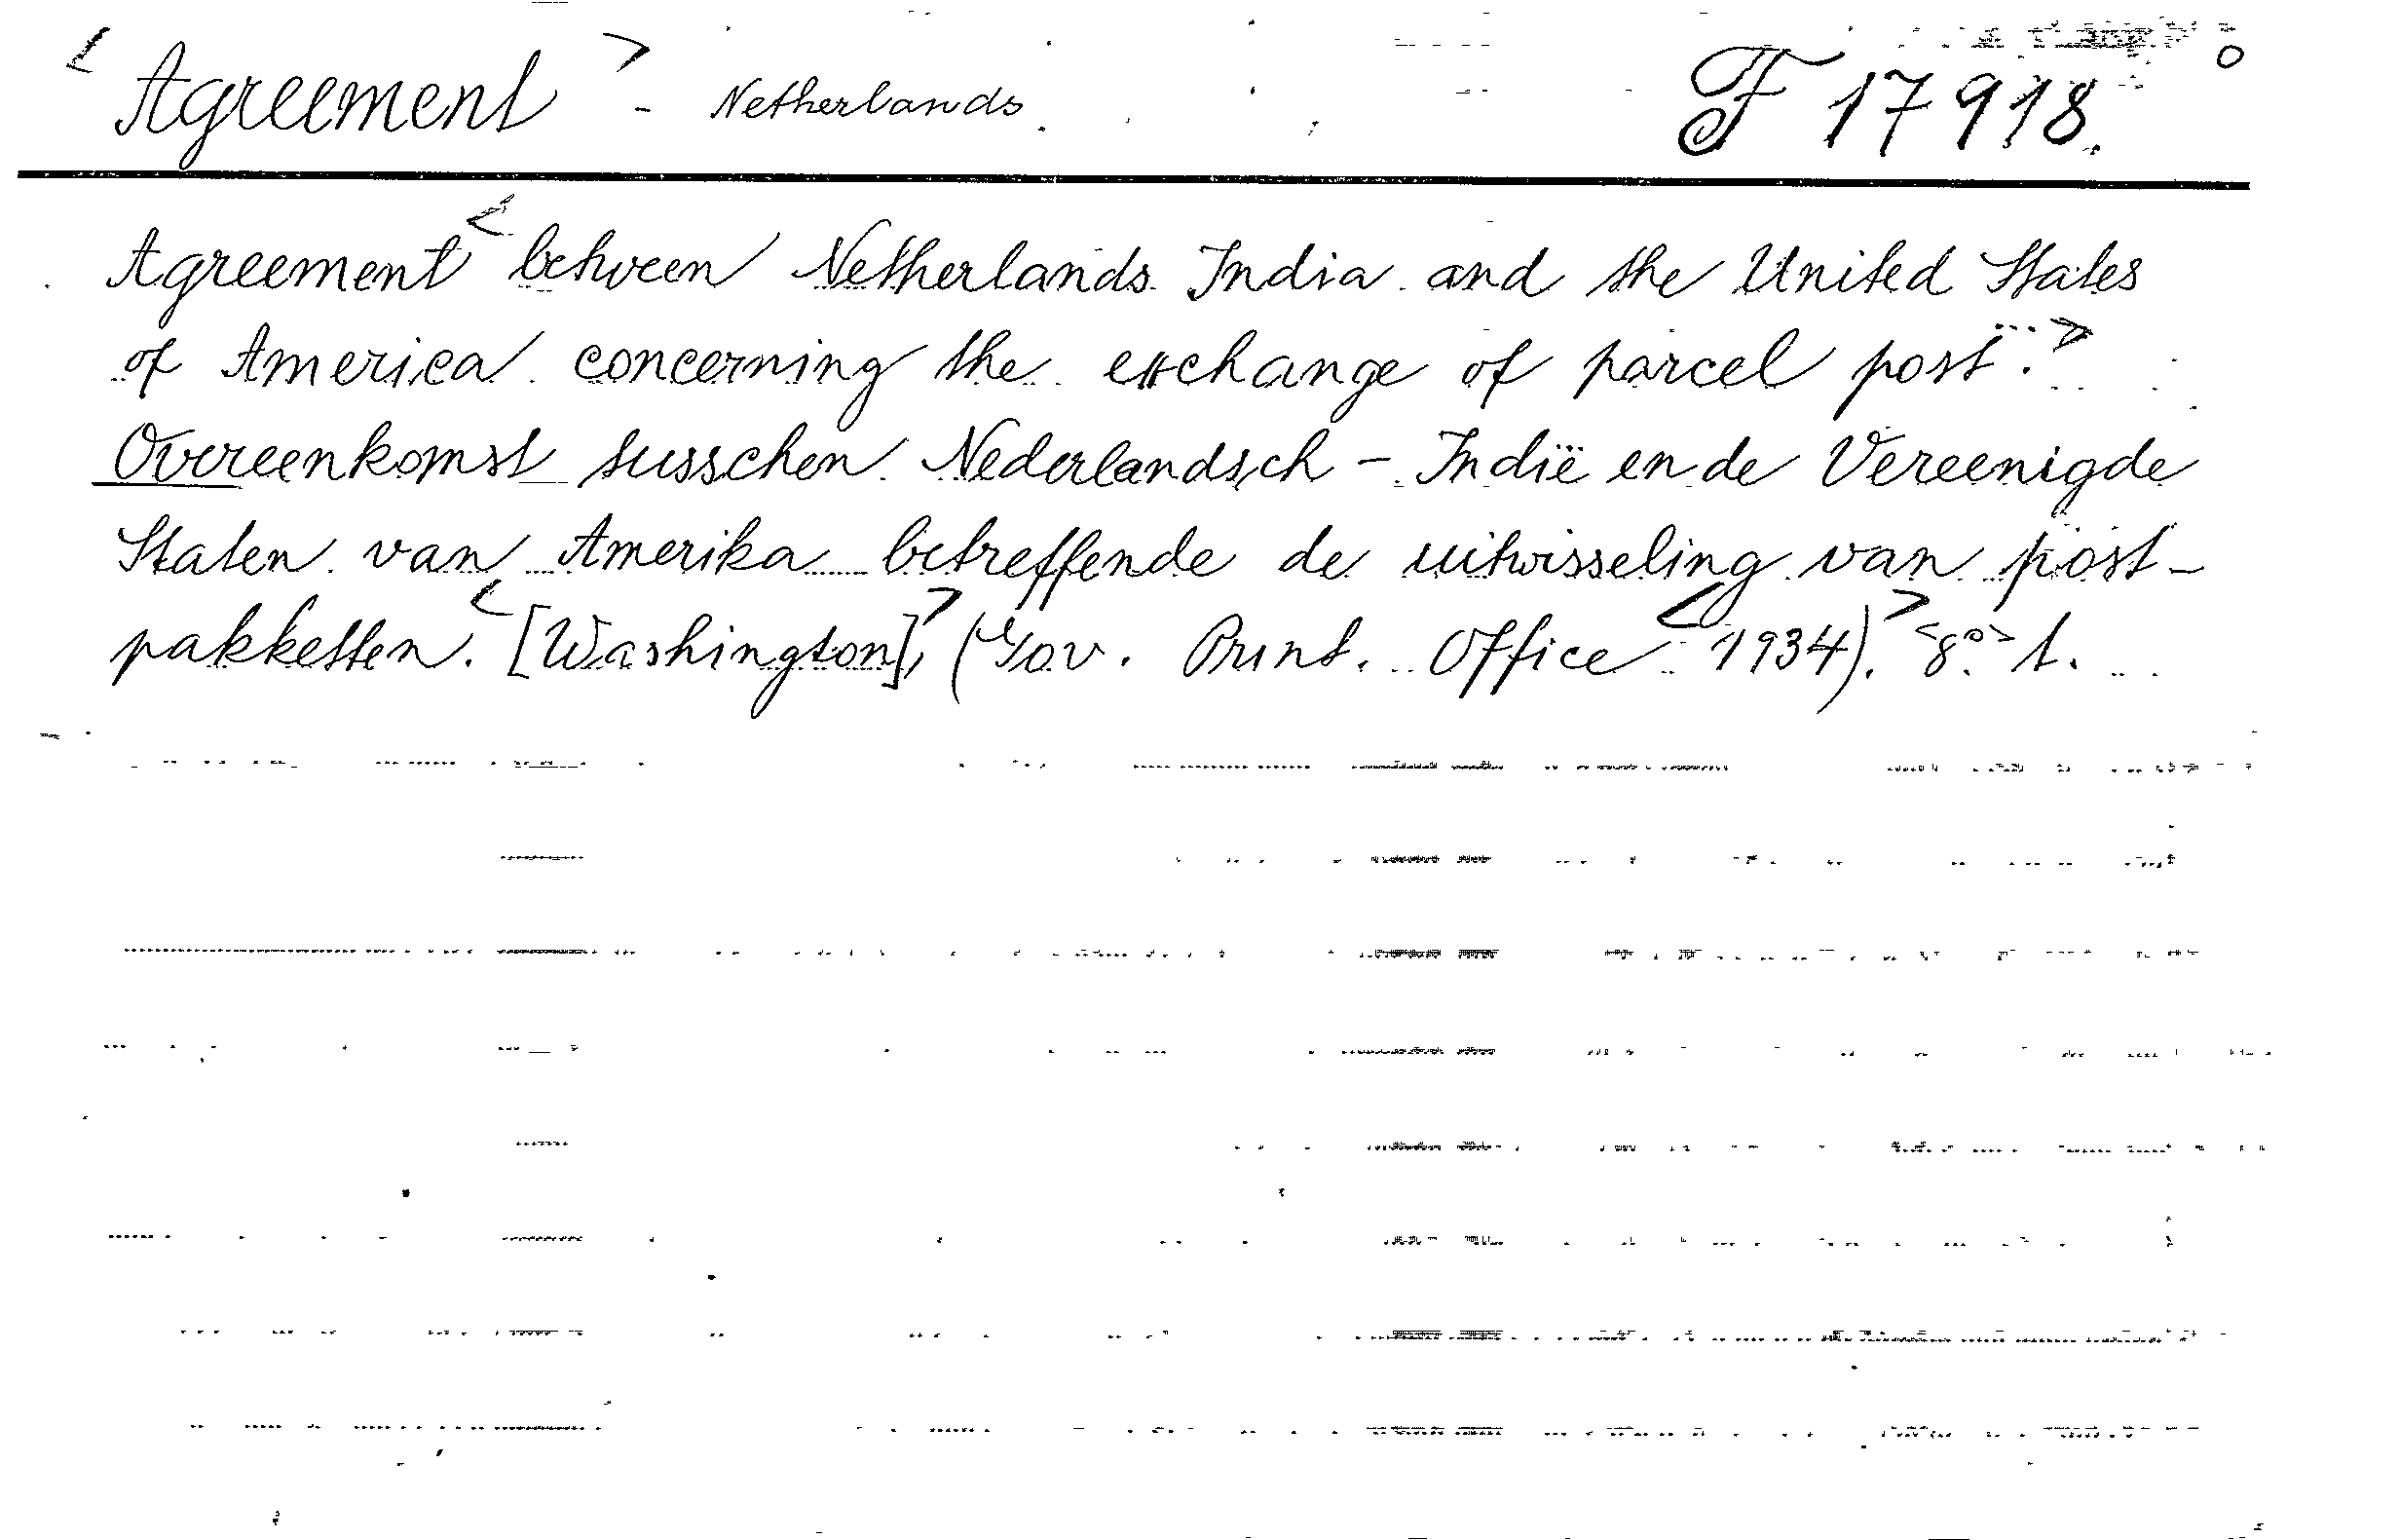 <Agreement> - Netherlands. F 17918.
Agreement < between Netherlands India and the United States
of America concerning the exchange of parcel post...>
Overeenkomst tusschen Nederlandsch - Indië en de Vereenigde
Staten van Amerika betreffende de uitwisseling van post-
pakketten. <[Washington],> (Gov. Print. Office < 1934).> <8°.> 1.